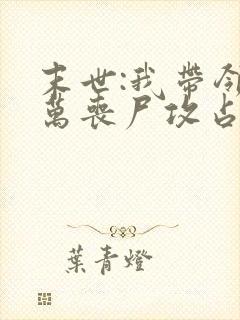 末世:我帶領
萬喪尸攻占
葉青燈